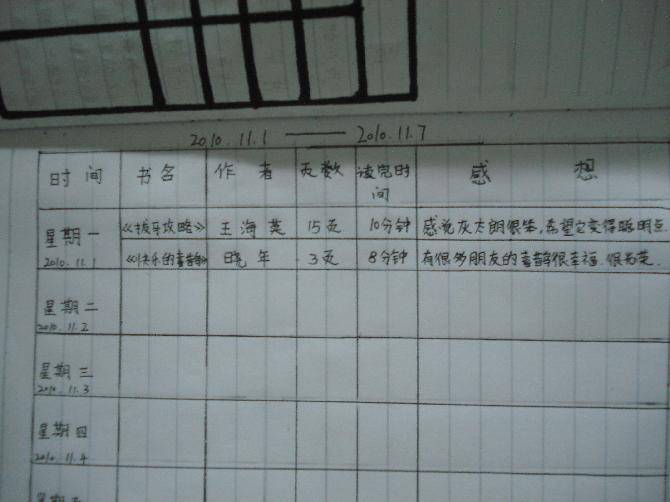 2010.11.1 —— 2010.11.7
时间 书名 作者 页数 读完时间 感想
星期一 2010.11.1 《拔牙攻略》 王海英 15页 10分钟 感觉灰太朗很笨,希望它变得聪明点.
《快乐的喜鹊》 晓年 3页 8分钟 有很多朋友的喜鹊很幸福.
星期二
2010.11.2
星期三
2010.11.3
星期四
2010.11.4